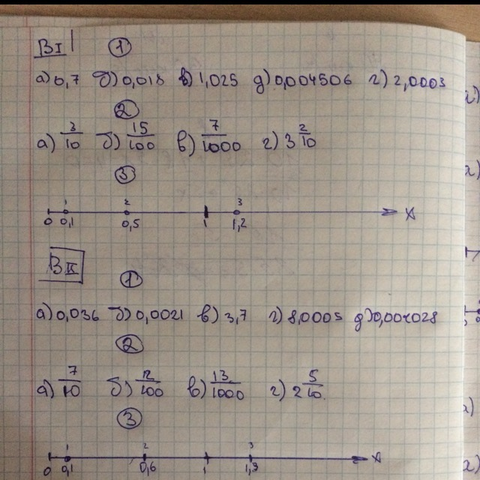 ВI
1
а) 0,7 б) 0,018 в) 1,025 д) 0,004506 г) 2,0003
2
а) 3/10 б) 15/100 в) 7/1000 г) 3 2/10
3
1 2 3
0 0,1 0,5 1 1,2 x
ВII
1
а) 0,036 б) 0,0021 в) 3,7 г) 8,0005 д) 0,004028
2
а) 7/10 б) 12/100 в) 13/1000 г) 2 5/10
3
1 2 3
0 0,1 0,6 1 1,3 x